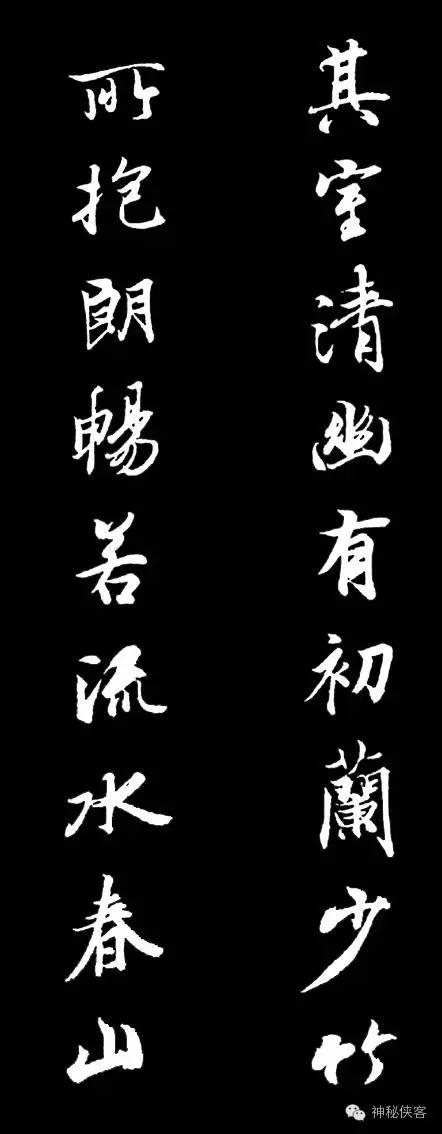 其室清幽有初蘭少竹
所抱朗暢若流水春山
神秘侠客